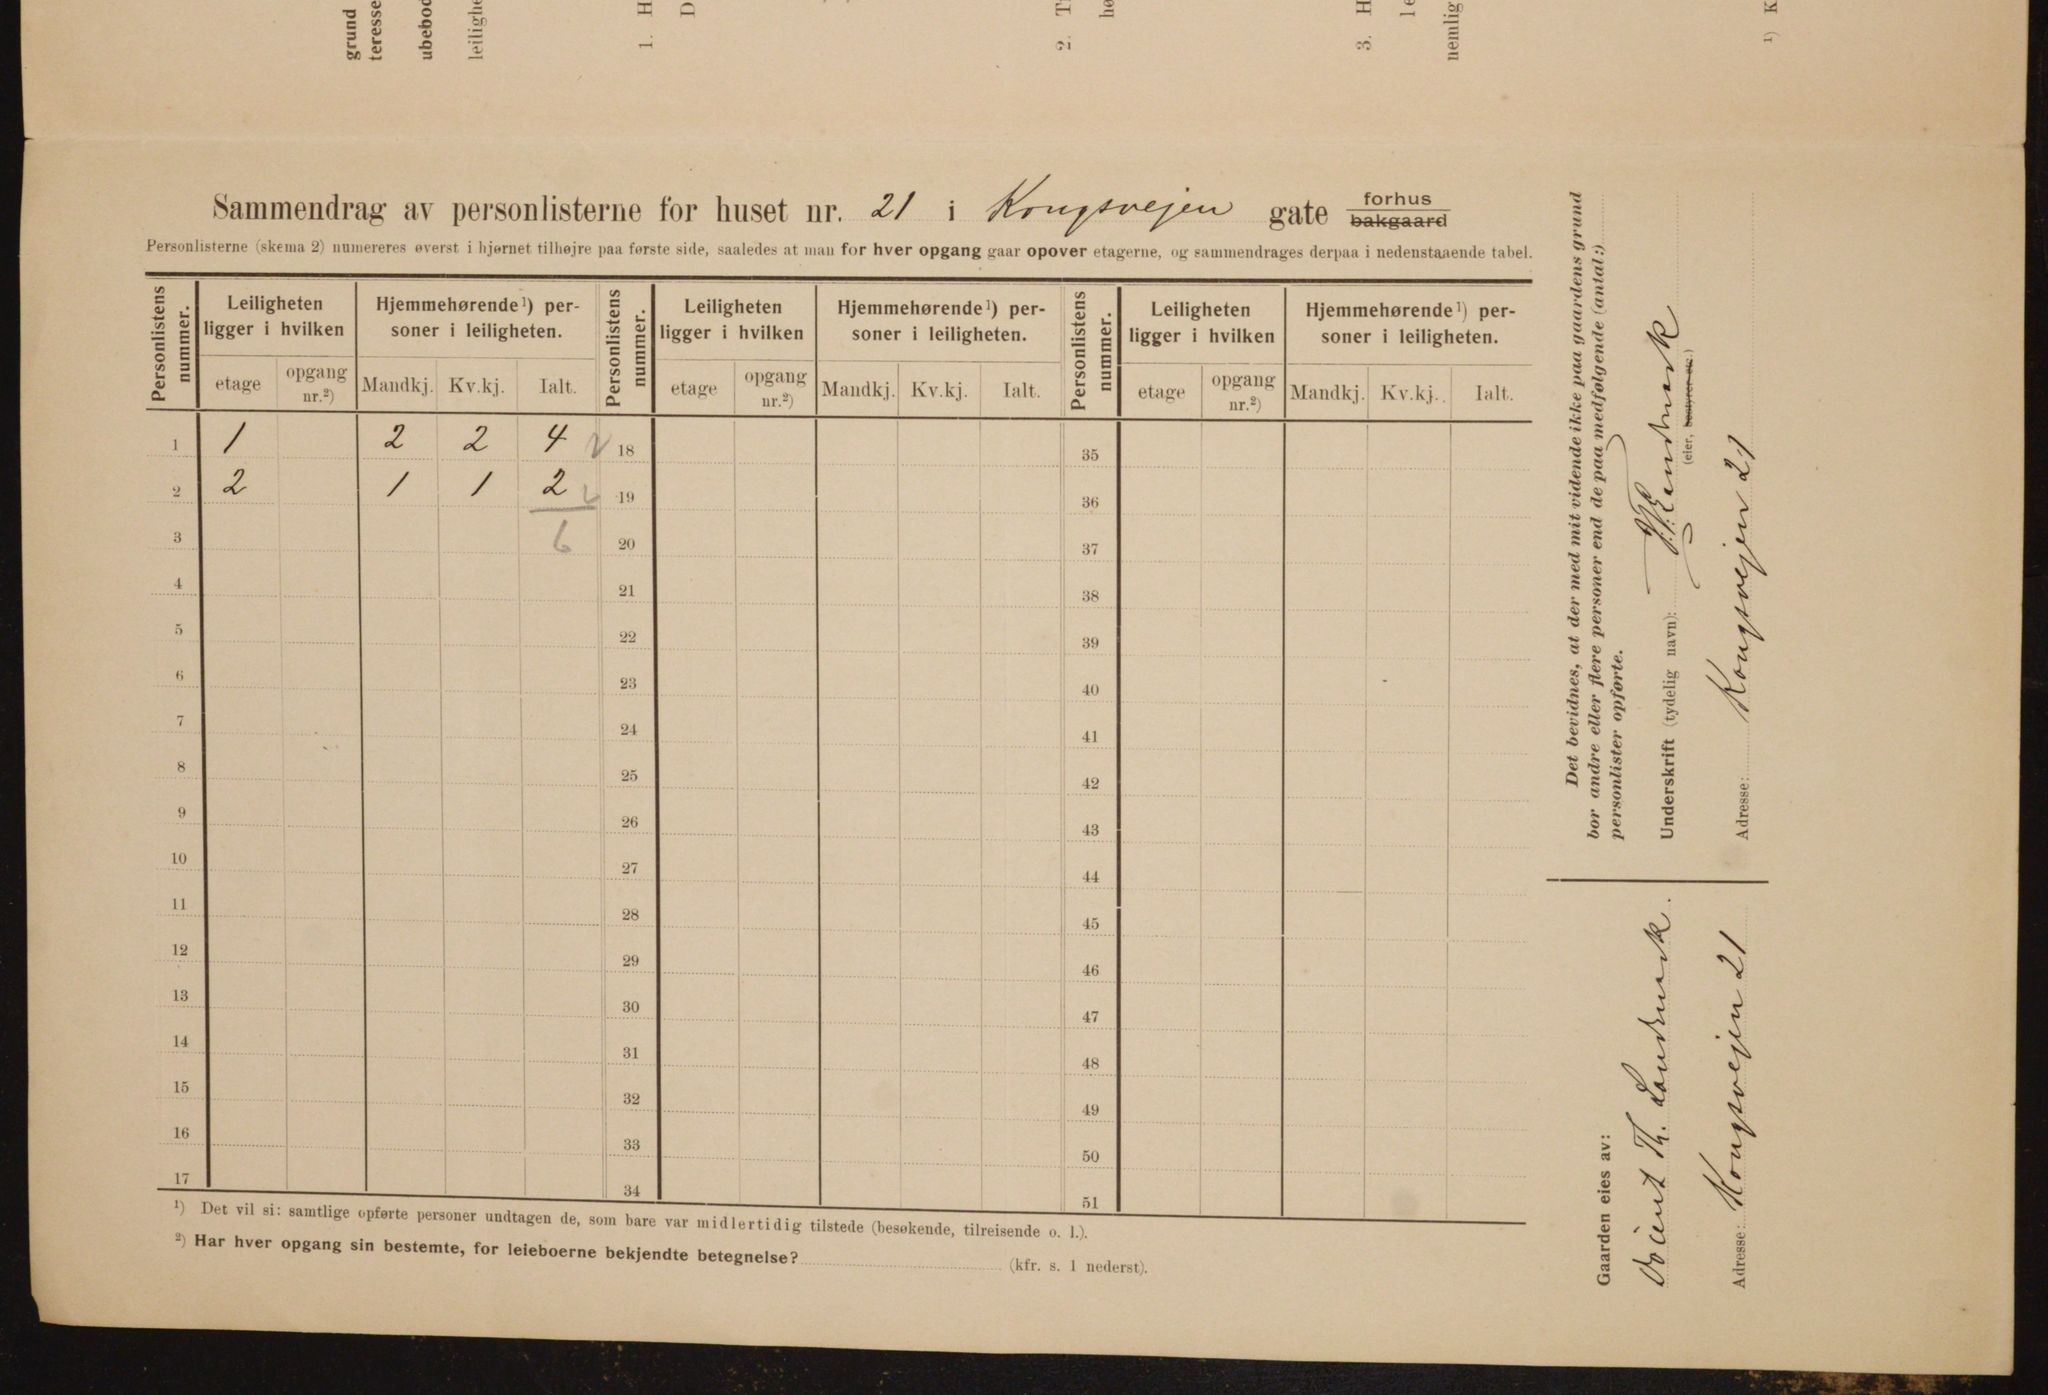 grund
teresse
ubebod
leilighe
1. H
D
2. T
hø
3. H
le
nemlig
1) K
Sammendrag av personlisterne for huset nr. 21 i Kongsvejen gate forhus
bakgaard
Personlisterne (skema 2) numereres øverst i hjørnet tilhøjre paa første side, saaledes at man for hver opgang gaar opover etagerne, og sammendrages derpaa i nedenstaaende tabel.
Personlistens nummer. Leiligheten ligger i hvilken Hjemmehørende1) personer i leiligheten. Personlistens nummer. Leiligheten ligger i hvilken Hjemmehørende1) personer i leiligheten. Personlistens nummer. Leiligheten ligger i hvilken Hjemmehørende1) personer i leiligheten.
etage opgang nr.2) Mandkj. Kv.kj. Ialt. etage opgang nr.2) Mandkj. Kv.kj. Ialt. etage opgang nr.2) Mandkj. Kv.kj. Ialt.
1 1 2 2 4 18 35
2 2 1 1 2 19 36
3 6 20 37
4 21 38
5 22 39
6 23 40
7 24 41
8 25 42
9 26 43
10 27 44
11 28 45
12 29 46
13 30 47
14 31 48
15 32 49
16 33 50
17 34 51
1) Det vil si: samtlige opførte personer undtagen de, som bare var midlertidig tilstede (besøkende, tilreisende o. l.).
2) Har hver opgang sin bestemte, for leieboerne bekjendte betegnelse? (kfr. s. 1 nederst).
Det bevidnes, at der med mit vidende ikke paa gaardens grund
bor andre eller flere personer end de paa medfølgende (antal:)
personlister opførte.
Underskrift (tydelig navn): Th. Landmark
(eier, bestyrer etc.)
Adresse: Kongsvejen 21
Gaarden eies av:
Docent Th. Landmark.
Adresse: Kongsvejen 21